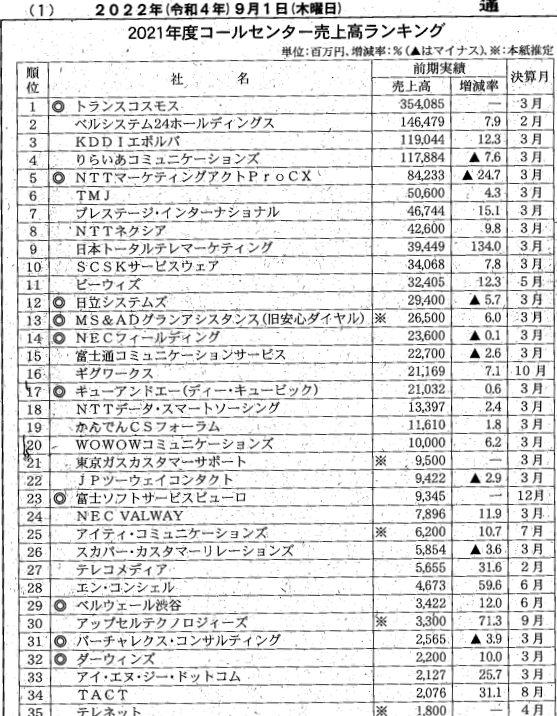 (1) 2022年(令和4年)9月1日(木曜日) 通
2021年度コールセンター売上高ランキング
単位:百万円、増減率:%(▲はマイナス)、※:本紙推定
順位 社名 前期実績 決算月
売上高 増減率
1 ◎ トランスコスモス 354,085 — 3月
2 ベルシステム24ホールディングス 146,479 7.9 2月
3 KDDIエボルバ 119,044 12.3 3月
4 りらいあコミュニケーションズ 117,884 ▲7.6 3月
5 ◎ NTTマーケティングアクトProCX 84,233 ▲24.7 3月
6 TMJ 50,600 4.3 3月
7 プレステージ・インターナショナル 46,744 15.1 3月
8 NTTネクシア 42,600 9.8 3月
9 日本トータルテレマーケティング 39,449 134.0 3月
10 SCSKサービスウェア 34,068 7.8 3月
11 ビーウィズ 32,405 12.3 5月
12 ◎ 日立システムズ 29,400 ▲5.7 3月
13 ◎ MS&ADグランアシスタンス(旧安心ダイヤル) ※ 26,500 6.0 3月
14 ◎ NECフィールディング 23,600 ▲0.1 3月
15 富士通コミュニケーションサービス 22,700 ▲2.6 3月
16 ギグワークス 21,169 7.1 10月
17 ◎ キューアンドエー(ディー・キュービック) 21,032 0.6 3月
18 NTTデータ・スマートソーシング 13,397 2.4 3月
19 かんでんCSフォーラム 11,610 1.8 3月
20 WOWOWコミュニケーションズ 10,000 6.2 3月
21 東京ガスカスタマーサポート ※ 9,500 — 3月
22 JPツーウェイコンタクト 9,422 ▲2.9 3月
23 ◎ 富士ソフトサービスビューロ 9,345 — 12月
24 NEC VALWAY 7,896 11.9 3月
25 アイティ・コミュニケーションズ ※ 6,200 10.7 7月
26 スカパー・カスタマーリレーションズ 5,854 ▲3.6 3月
27 テレコメディア 5,655 31.6 2月
28 エン・コンシェル 4,673 59.6 6月
29 ◎ ベルウェール渋谷 3,422 12.0 6月
30 アップセルテクノロジィーズ ※ 3,300 71.3 9月
31 ◎ バーチャレクス・コンサルティング 2,565 ▲3.9 3月
32 ◎ ダーウィンズ 2,200 10.0 3月
33 アイ・エヌ・ジー・ドットコム 2,127 25.7 3月
34 TACT 2,076 31.1 8月
35 テレネット ※ 1,800 — 4月